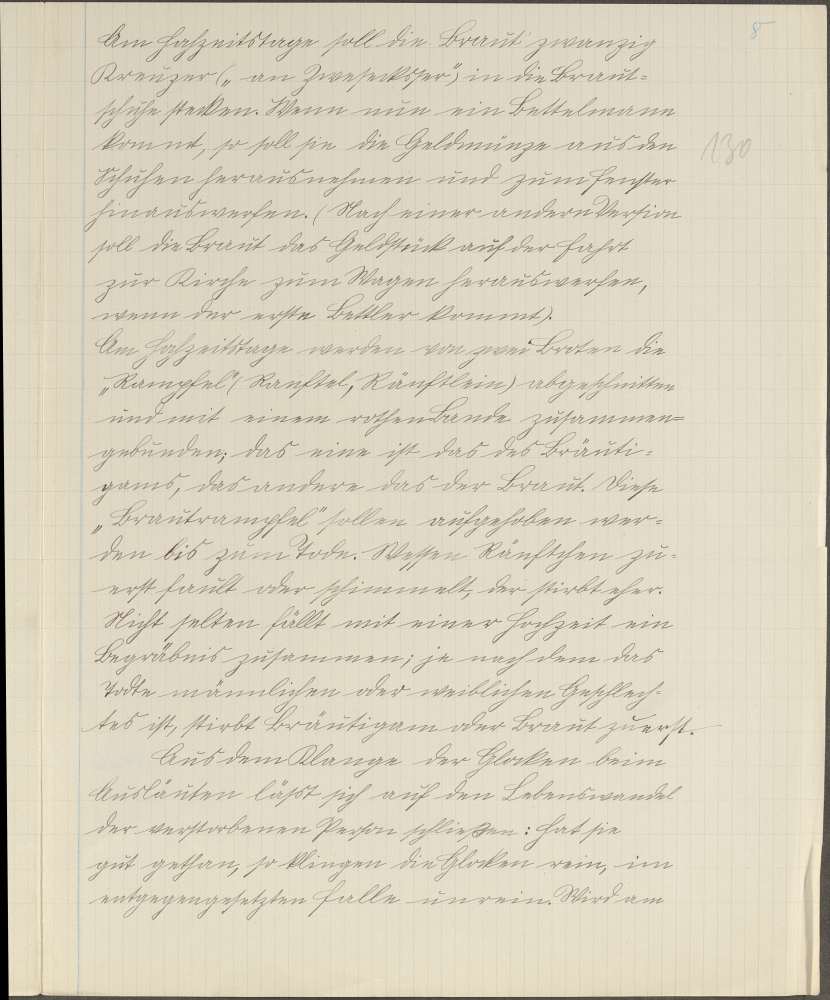 8
Am Hochzeitstage soll die Braut zwanzig
Kreuzer („ an Zwesecksser“) in die Braut=
schuhe stecken. Wenn nun ein Bettelmann
kommt, so soll sie die Geldmünze aus den
130
Schuhen herausnehmen und zum Fenster
hinauswerfen. (Nach einer andern Version
soll die Braut das Geldstück auf der Fahrt
zur Kirche zum Wagen herauswerfen,
wenn der erste Bettler kommt).
Am Hochzeitstage werden von zwei Broten die
„Rampfel“ (Ranftel, Ränftlein) abgeschnitten
und mit einem rothen Bande zusammen=
gebunden; das eine ist das des Bräuti=
gams, das andere das der Braut. Diese
„Brautrampfel“ sollen aufgehoben wer=
den bis zum Tode. Wessen Ränftchen zu=
erst fault oder schimmelt, der stirbt eher.
Nicht selten fällt mit einer Hochzeit ein
Begräbnis zusammen; je nach dem das
Todte männlichen oder weiblichen Geschlech=
tes ist, stirbt Bräutigam oder Braut zuerst.
Aus dem Klange der Glocken beim
Ausläuten läßt sich auf den Lebenswandel
der verstorbenen Person schließen: hat sie
gut gethan, so klingen die Glocken rein, im
entgegengesetzten Falle unrein. Wird am